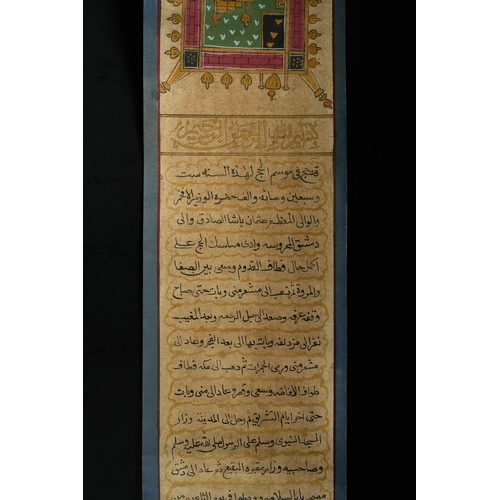 بسم الله الرحمن الرحيم
قد حج في موسم الحج لهذه السنه ست
وسبعين ومائه والف حضره الوزير الافخم
والوالي المعظم عثمان باشا الصادق والي
دمشق المحروسه وادى مناسك الحج على
اكمل حال فطاف القدوم وسعى بين الصفا
والمروة ثم ذهب الى مشعر منى وبات حتى صباح
وقفة عرفه وصعد الى جبل الرحمه وبعد المغيب
نفر الى مزدلفه وبات بها الى بعد الفجر وعاد الى
مشعر منى ورمى الجمرات ثم ذهب الى مكه فطاف
طواف الافاضه وسعى وقصر وعاد الى منى وبات
حتى اخر ايام التشريق ثم رحل الى المدينة وزار
المسجد النبوي وسلم على الرسول صلى الله عليه وسلم
وصاحبيه وزار مقبرة البقيع ثم عاد الى دمشق
بالسلامه